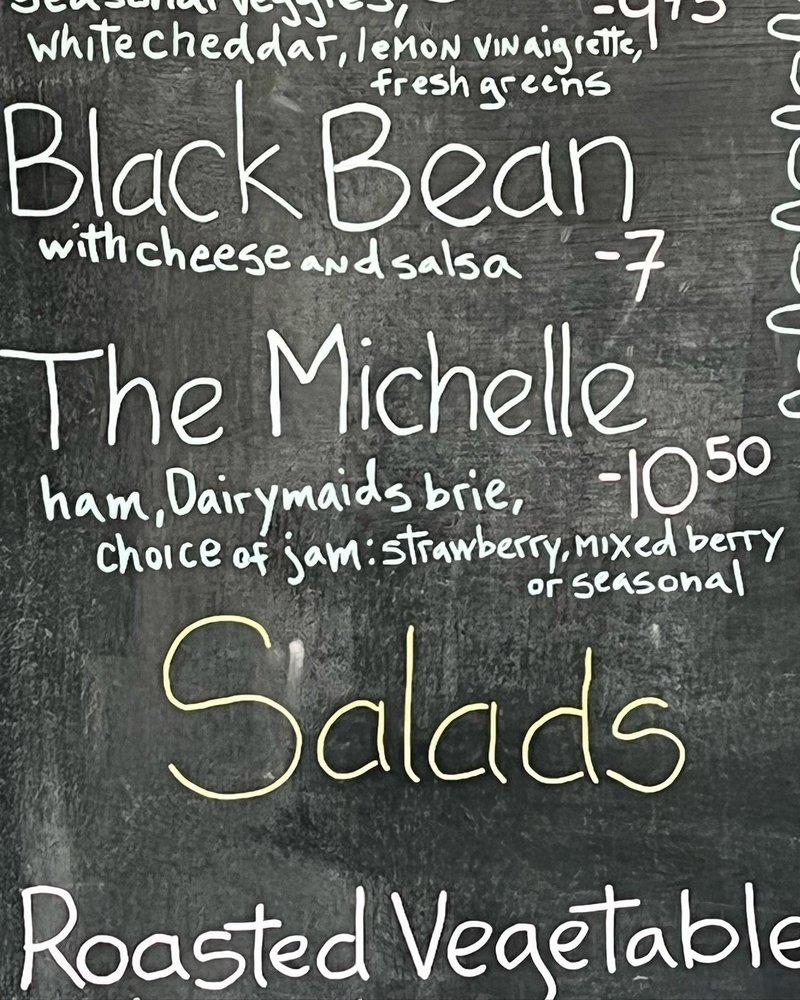 seasonal veggies, -9 75
white cheddar, lemon vinaigrette,
fresh greens
Black Bean
with cheese and salsa -7
The Michelle
ham, Dairymaids brie, -10 50
choice of jam: strawberry, mixed berry
or seasonal
Salads
Roasted Vegetable